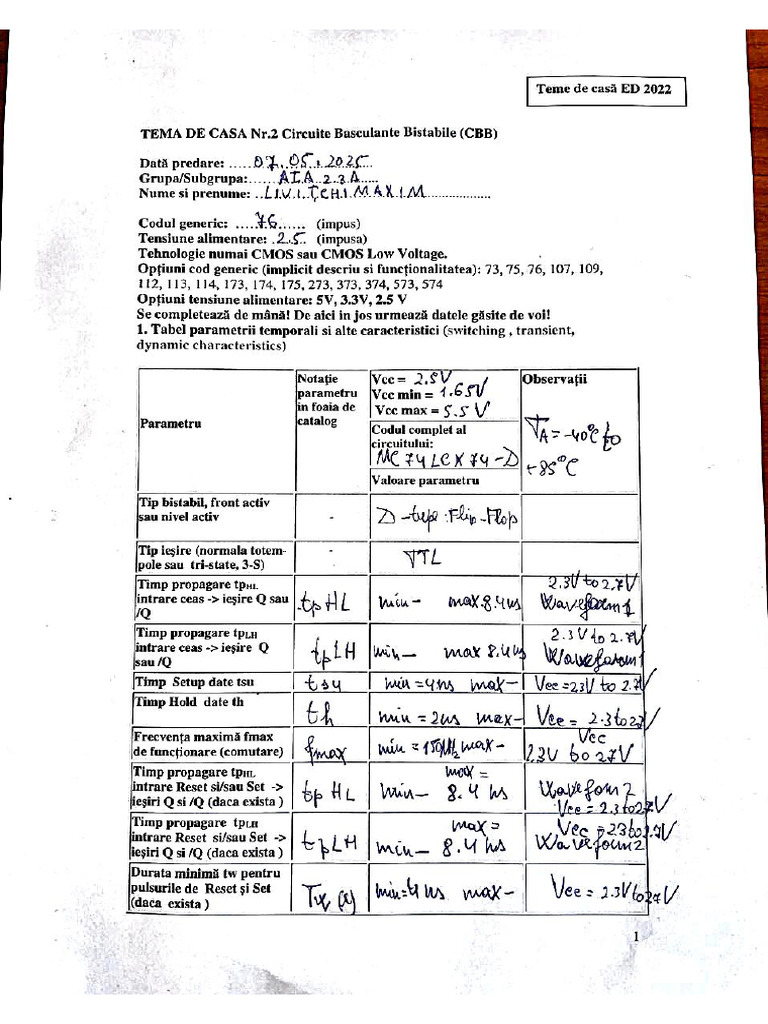 Teme de casă ED 2022
TEMA DE CASA Nr.2 Circuite Basculante Bistabile (CBB)
Dată predare: .....07.05.2025....
Grupa/Subgrupa:......AIA 2.3A.....
Nume si prenume: ..LIVITCHI MAXIM..................
Codul generic: .....76...... (impus)
Tensiune alimentare: .2.5. (impusa)
Tehnologie numai CMOS sau CMOS Low Voltage.
Opțiuni cod generic (implicit descriu si funcționalitatea): 73, 75, 76, 107, 109,
112, 113, 114, 173, 174, 175, 273, 373, 374, 573, 574
Opțiuni tensiune alimentare: 5V, 3.3V, 2.5 V
Se completează de mână! De aici in jos urmează datele găsite de voi!
1. Tabel parametrii temporali si alte caracteristici (switching , transient,
dynamic characteristics)
Parametru
Notație
parametru
in foaia de
catalog
Vcc = 2.5V
Vcc min = 1.65V
Vcc max = 5.5 V
Codul complet al
circuitului:
MC74LCX74-D
Valoare parametru
Observații
TA = -40°C to
+85°C
Tip bistabil, front activ
sau nivel activ
-
D-type Flip-Flop
Tip ieșire (normala totem-
pole sau tri-state, 3-S)
-
TTL
Timp propagare tpHL
intrare ceas -> ieșire Q sau
/Q
tpHL
min- max 8.4ns
2.3V to 2.7V
Waveform 1
Timp propagare tpLH
intrare ceas -> ieșire Q
sau /Q
tpLH
min- max 8.4ns
2.3V to 2.7V
Waveform 1
Timp Setup date tsu
tsu
min=4ns max-
Vcc=2.3V to 2.7V
Timp Hold date th
th
min=2ns max-
Vcc=2.3to2.7V
Frecvența maximă fmax
de funcționare (comutare)
fmax
min=150MHz max-
Vcc
2.3V to 2.7V
Timp propagare tpHL
intrare Reset si/sau Set ->
ieșiri Q si /Q (daca exista )
tpHL
max=
min- 8.4 ns
Waveform 2
Vcc=2.3to2.7V
Timp propagare tpLH
intrare Reset si/sau Set ->
ieșiri Q si /Q (daca exista )
tpLH
max=
min- 8.4 ns
Vcc=2.3to2.7V
Waveform 2
Durata minimă tw pentru
pulsurile de Reset și Set
(daca exista )
min=4 ns max-
Vcc=2.3Vto2.7V
1